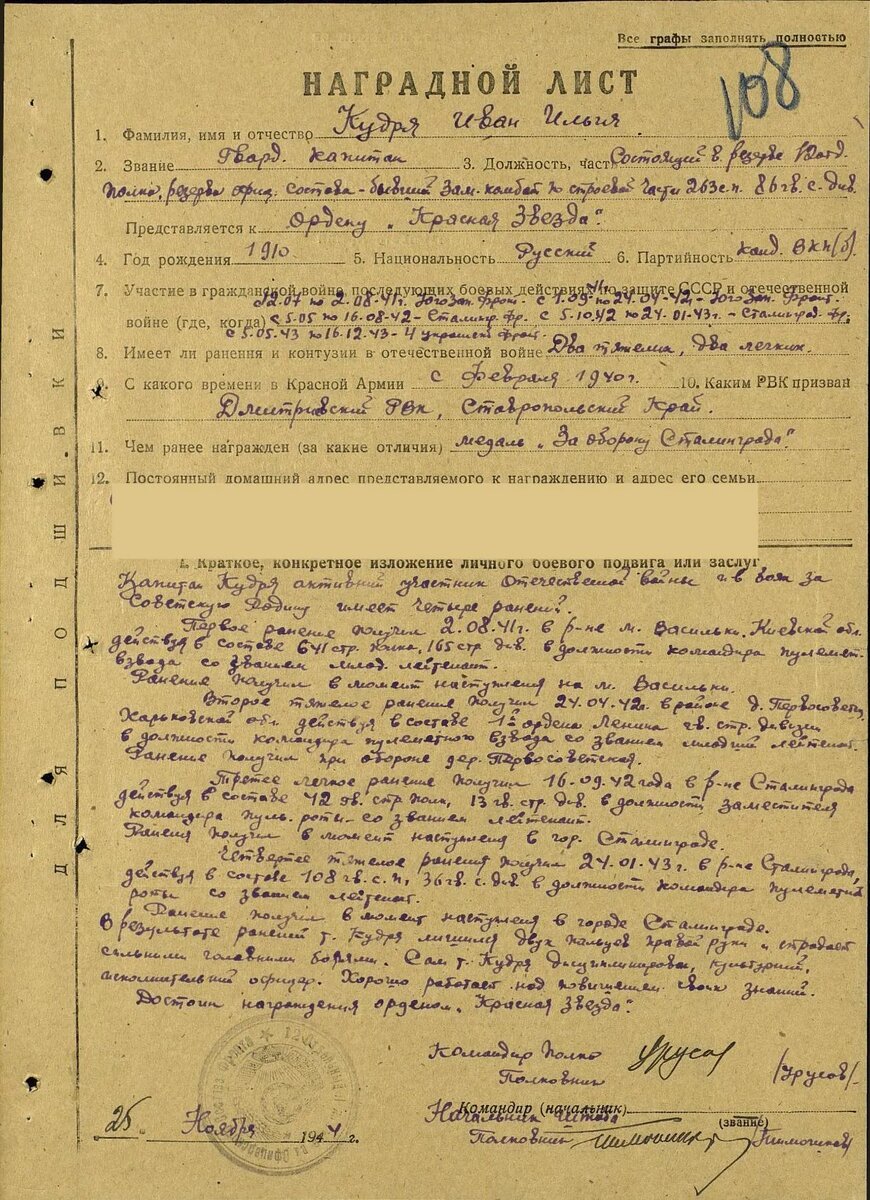 Все графы заполнять полностью
108
НАГРАДНОЙ ЛИСТ
1. Фамилия, имя и отчество Кудря Иван Ильич
2. Звание Гвард. капитан 3. Должность, част Состоящий в резерве
полка, резерва офиц. состава - бывший Зам. комбат по строевой части 263 с.п. 86 гв. с. див.
Представляется к ордену „Красная Звезда".
4. Год рождения 1910 5. Национальность Русский 6. Партийность канд. ВКП(б)
7. Участие в гражданской войне, последующих боевых действиях по защите СССР и отечественной
07 по 2.08-41г. Югозап. Фронт. с 1.09 по 24.04-42г. - Югозап. Фронт.
войне (где, когда) с 5.05 по 16.08-42 - Сталингр. фр. с 5.10.42 по 24.01-43г. - Сталинград. фр.
с 5.05.43 по 16.12.43 - 4 украинск фронт.
8. Имеет ли ранения и контузии в отечественной войне Два тяжелых, два легких.
9. С какого времени в Красной Армии с Февраля 1940г. 10. Каким РВК призван
Дмитриевский РВК, Ставропольский Край.
11. Чем ранее награжден (за какие отличия) медаль „За оборону Сталинграда"
12. Постоянный домашний адрес представляемого к награждению и адрес его семьи
I. Краткое, конкретное изложение личного боевого подвига или заслуг
Капитан Кудря активный участник Отечественной войны и в боях за
Советскую Родину имеет четыре ранения.
Первое ранение получил 2.08.41г. в р-не м. Васильки, Киевской обл.
действуя в составе 641 стр. полка, 165 стр. див. в должности командира пулемет.
взвода со званием млад. лейтенант.
Ранение получил в момент наступления на м. Васильки.
Второе тяжелое ранение получил 24.04.42г. в районе д. Первосоветск.
Харьковской обл. действуя в составе 1й ордена Ленина гв. стр. дивизии
в должности командира пулеметного взвода со званием младший лейтенант.
Ранение получил при обороне дер. Первосоветская.
Третее легкое ранение получил 16.09.42 года в р-не Сталинграда
действуя в составе 42 гв. стр. полк, 13 гв. стр. див. в должности заместителя
командира пуль. роты со званием лейтенант.
Ранения получил в момент наступления в гор. Сталинграде.
Четвертое тяжелое ранения получил 24.01.43г. в р-не Сталинграда,
действуя в составе 108 гв. с.п, 36 гв. с. див. в должности командира пулеметной
роты со званием лейтенант.
Ранение получил в момент наступления в городе Сталинграде.
В результате ранений т. Кудря лишился двух пальцев правой руки и страдает
сильными головными болями. Сам т. Кудря дисциплинирован, культурный,
исполнительный офицер. Хорошо работает над повышением своих знаний.
Достоин награждения орденом „Красная Звезда".
Командир полка
Полковник Урусов /Урусов/
Командир (начальник)
Начальник Штаба
(звание)
Полковник
25 Ноября 1944 г.
ДЛЯ ПОДШИВКИ